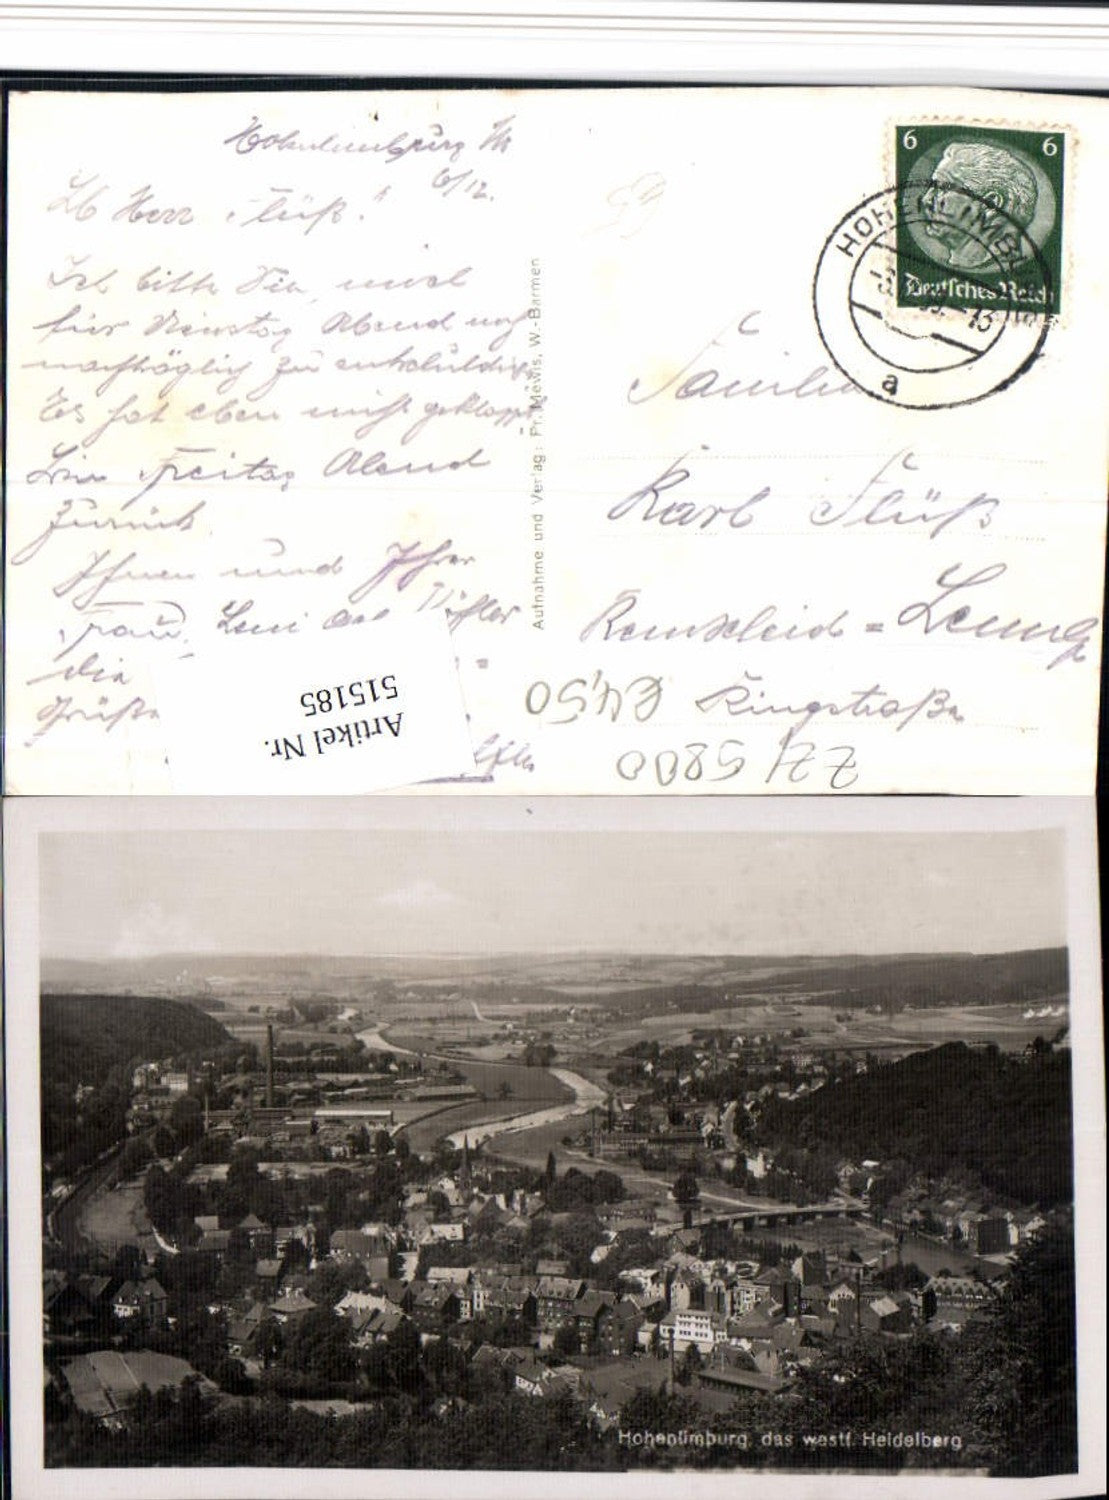 Hohenlimburg
6/12.
Lb Herr Flüß!
Ich bitte Sie, mich
für Dienstag Abend noch
nachträglich zu entschuldigen
Es hat eben nicht geklappt
Bin Freitag Abend
zurück.
Ihnen und Ihrer
Frau,
die
Grüße
Aufnahme und Verlag: Fr. Mewis, W.-Barmen
6 6
Deutsches Reich
HOHENLIMBURG
a
Familie
Karl Flüß
Remscheid = Lennep
Ringstraße
€4,50
ZH 5800
Artikel Nr.
515185
Hohenlimburg, das westf. Heidelberg